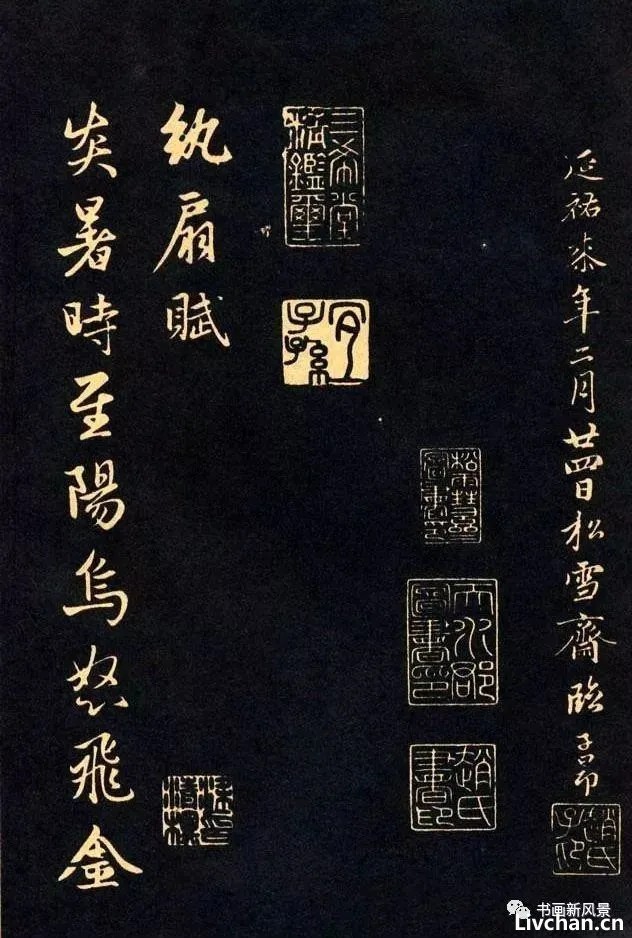 延祐柒年二月廿四日松雪齋臨子昂
趙氏子昂
天水郡圖書印
趙氏書印
三希堂精鑑璽
宜子孫
紈扇賦
炎暑時至陽烏怒飛金
书画新风景
Livchan.cn